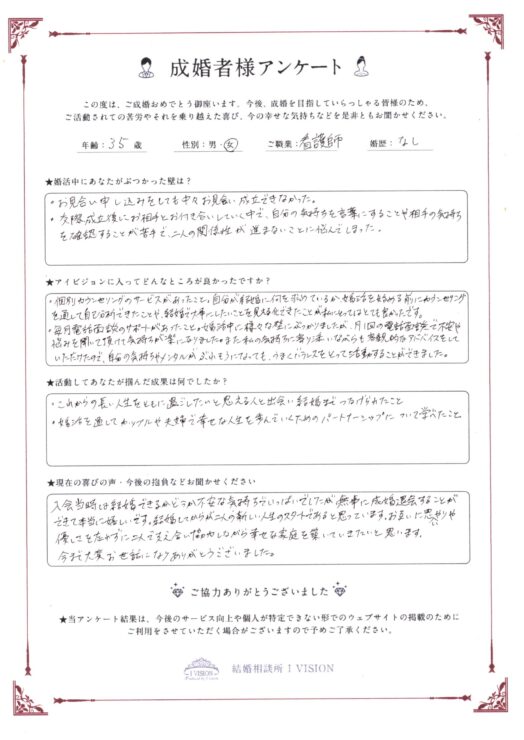 成婚者様アンケート
この度は、ご成婚おめでとう御座います。今後、成婚を目指していらっしゃる皆様のため、
ご活動されての苦労やそれを乗り越えた喜び、今の幸せな気持ちなどを是非ともお聞かせください。
年齢：35 歳 性別：男・女 ご職業：看護師 婚歴：なし
★婚活中にあなたがぶつかった壁は？
・お見合い申し込みをしても中々お見合い成立できなかった。
・交際成立後にお相手とお付き合いしていく中で、自分の気持ちを言葉にすることや相手の気持ち
を確認することが苦手で、二人の関係性が進まないことに悩んでしまった。
★アイビジョンに入ってどんなところが良かったですか？
・個別カウンセリングのサービスがあったこと。自分が結婚に何を求めているか、婚活を始める前にカウンセリング
を通して自己分析できたことや、結婚で大事にしたいことを見える化できたことが私にとってはとても良かったです。
・毎月電話面談のサポートがあったこと。婚活中に様々な壁にぶつかりましたが、月1回の電話面談で不安や
悩みを聞いて頂けて気持ちが楽になりました。また私の気持ちに寄り添いながらも客観的なアドバイスをして
いただけたので、自分の気持ちやメンタルがぶれそうになっても、うまくバランスをとって活動することができました。
★活動してあなたが掴んだ成果は何でしたか？
・これからの長い人生をともに過ごしたいと思える人と出会い結婚までつなげられたこと
・婚活を通してカップルや夫婦で幸せな人生を歩んでいくためのパートナーシップについて学べたこと
★現在の喜びの声・今後の抱負などお聞かせください
入会当時は結婚できるかどうか不安な気持ちでいっぱいでしたが無事に成婚退会することが
できて本当に嬉しいです。結婚してからが二人の新しい人生のスタートであると思っています。お互いに思いやりや
優しさを忘れずに二人で支え合い協力しながら幸せな家庭を築いていきたいと思います。
今まで大変お世話になりありがとうございました。
ご協力ありがとうございました
★当アンケート結果は、今後のサービス向上や個人が特定できない形でのウェブサイトの掲載のために
ご利用をさせていただく場合がございますので予めご了承ください。
I VISION
結婚相談所 I VISION